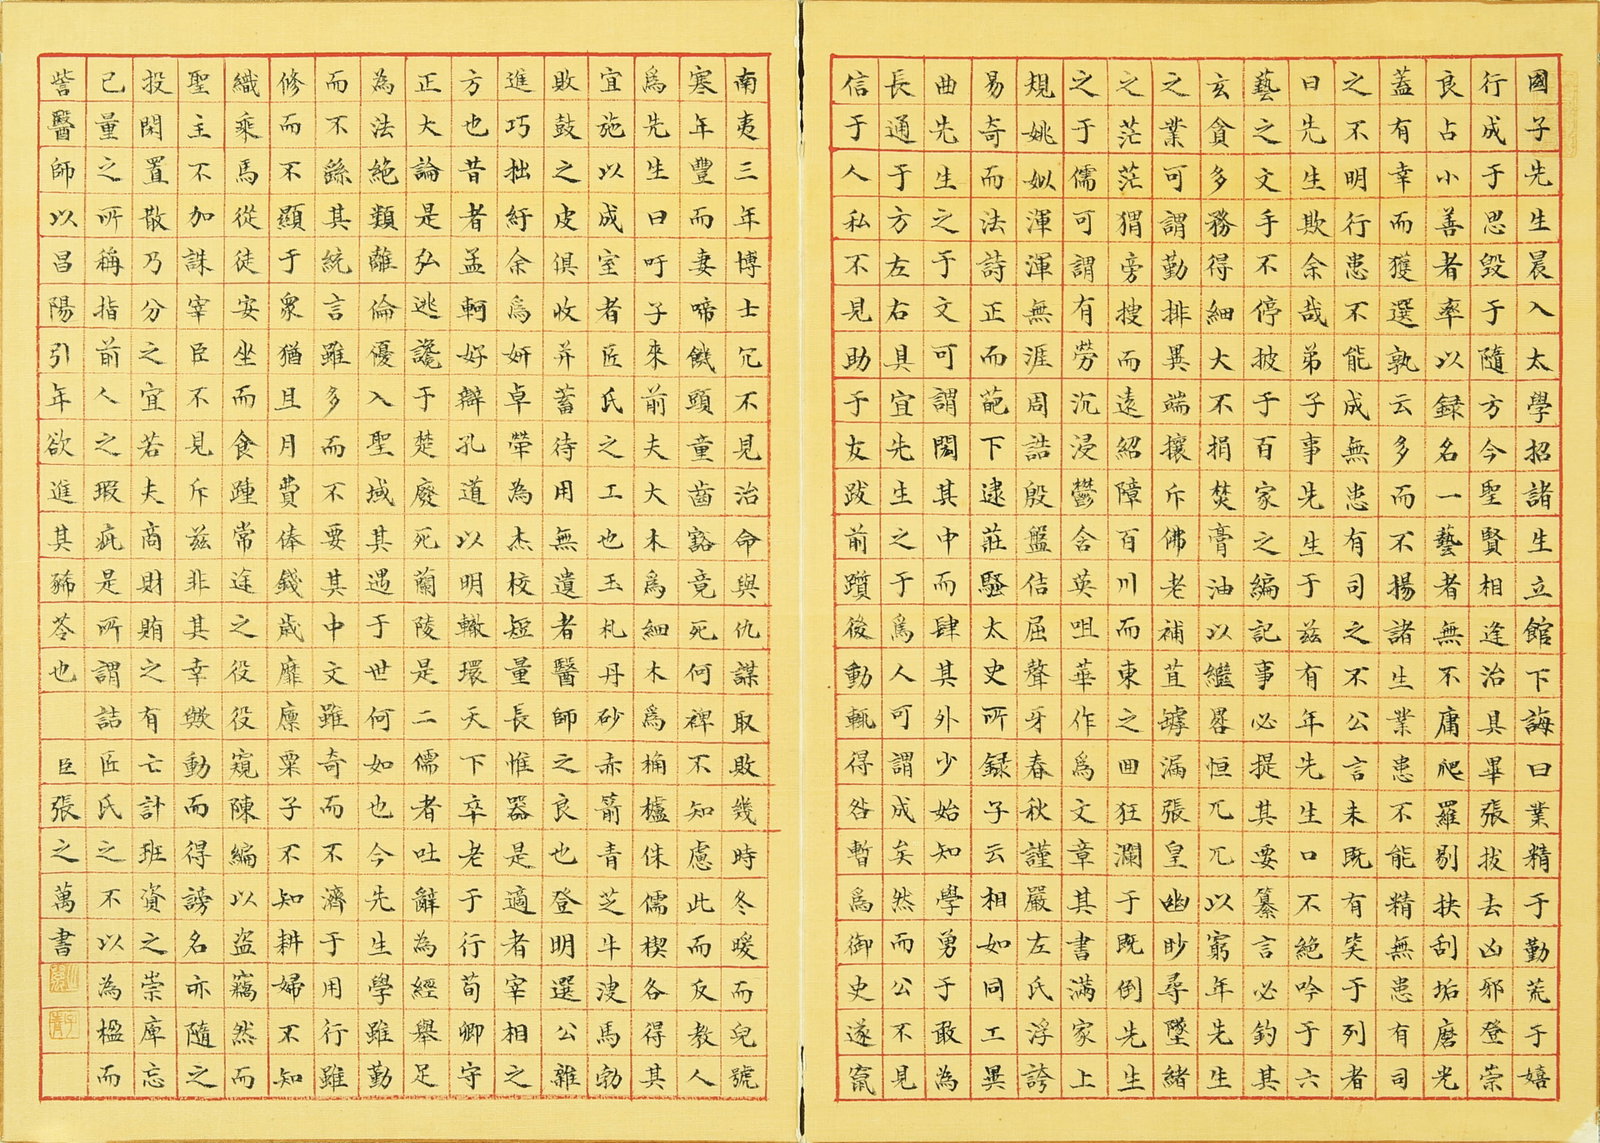 國子先生晨入太學招諸生立館下誨曰業精于勤荒于嬉
行成于思毀于隨方今聖賢相逢治具畢張拔去凶邪登崇
良占小善者率以録名一藝者無不庸爬羅剔抉刮垢磨光
蓋有幸而獲選孰云多而不揚諸生業患不能精無患有司
之不明行患不能成無患有司之不公言未既有笑于列者
曰先生欺余哉弟子事先生于茲有年先生口不絶吟于六
藝之文手不停披于百家之編記事必提其要纂言必鈎其
玄貪多務得細大不捐焚膏油以繼晷恒兀兀以窮年先生
之業可謂勤排異端攘斥佛老補苴罅漏張皇幽眇尋墜緒
之茫茫獨旁搜而遠紹障百川而東之回狂瀾于既倒先生
之于儒可謂有勞沉浸鬱含英咀華作爲文章其書滿家上
規姚姒渾渾無涯周誥殷盤佶屈聱牙春秋謹嚴左氏浮誇
易奇而法詩正而葩下逮莊騷太史所録子云相如同工異
曲先生之于文可謂閎其中而肆其外少始知學勇于敢為
長通于方左右具宜先生之于爲人可謂成矣然而公不見
信于人私不見助于友跋前躓後動輒得咎暫爲御史遂竄
南夷三年博士冗不見治命與仇謀取敗幾時冬暖而兒號
寒年豐而妻啼饑頭童齒豁竟死何裨不知慮此而反教人
爲先生曰吁子來前夫大木爲細木爲桷櫨侏儒楔各得其
宜施以成室者匠氏之工也玉札丹砂赤箭青芝牛溲馬勃
敗鼓之皮俱收并蓄待用無遺者醫師之良也登明選公雜
進巧拙紆余爲妍卓犖為杰校短量長惟器是適者宰相之
方也昔者孟軻好辯孔道以明轍環天下卒老于行荀卿守
正大論是弘逃讒于楚廢死蘭陵是二儒者吐辭為經舉足
為法絶類離倫優入聖域其遇于世何如也今先生學雖勤
而不繇其統言雖多而不要其中文雖奇而不濟于用行雖
修而不顯于衆猶且月費俸錢歲靡廩粟子不知耕婦不知
織乘馬從徒安坐而食踵常途之役役窺陳編以盜竊然而
聖主不加誅宰臣不見斥茲非其幸歟動而得謗名亦隨之
投閑置散乃分之宜若夫商財賄之有亡計班資之崇庫忘
己量之所稱指前人之瑕疵是所謂詰匠氏之不以為楹而
訾醫師以昌陽引年欲進其豨苓也 臣張之萬書